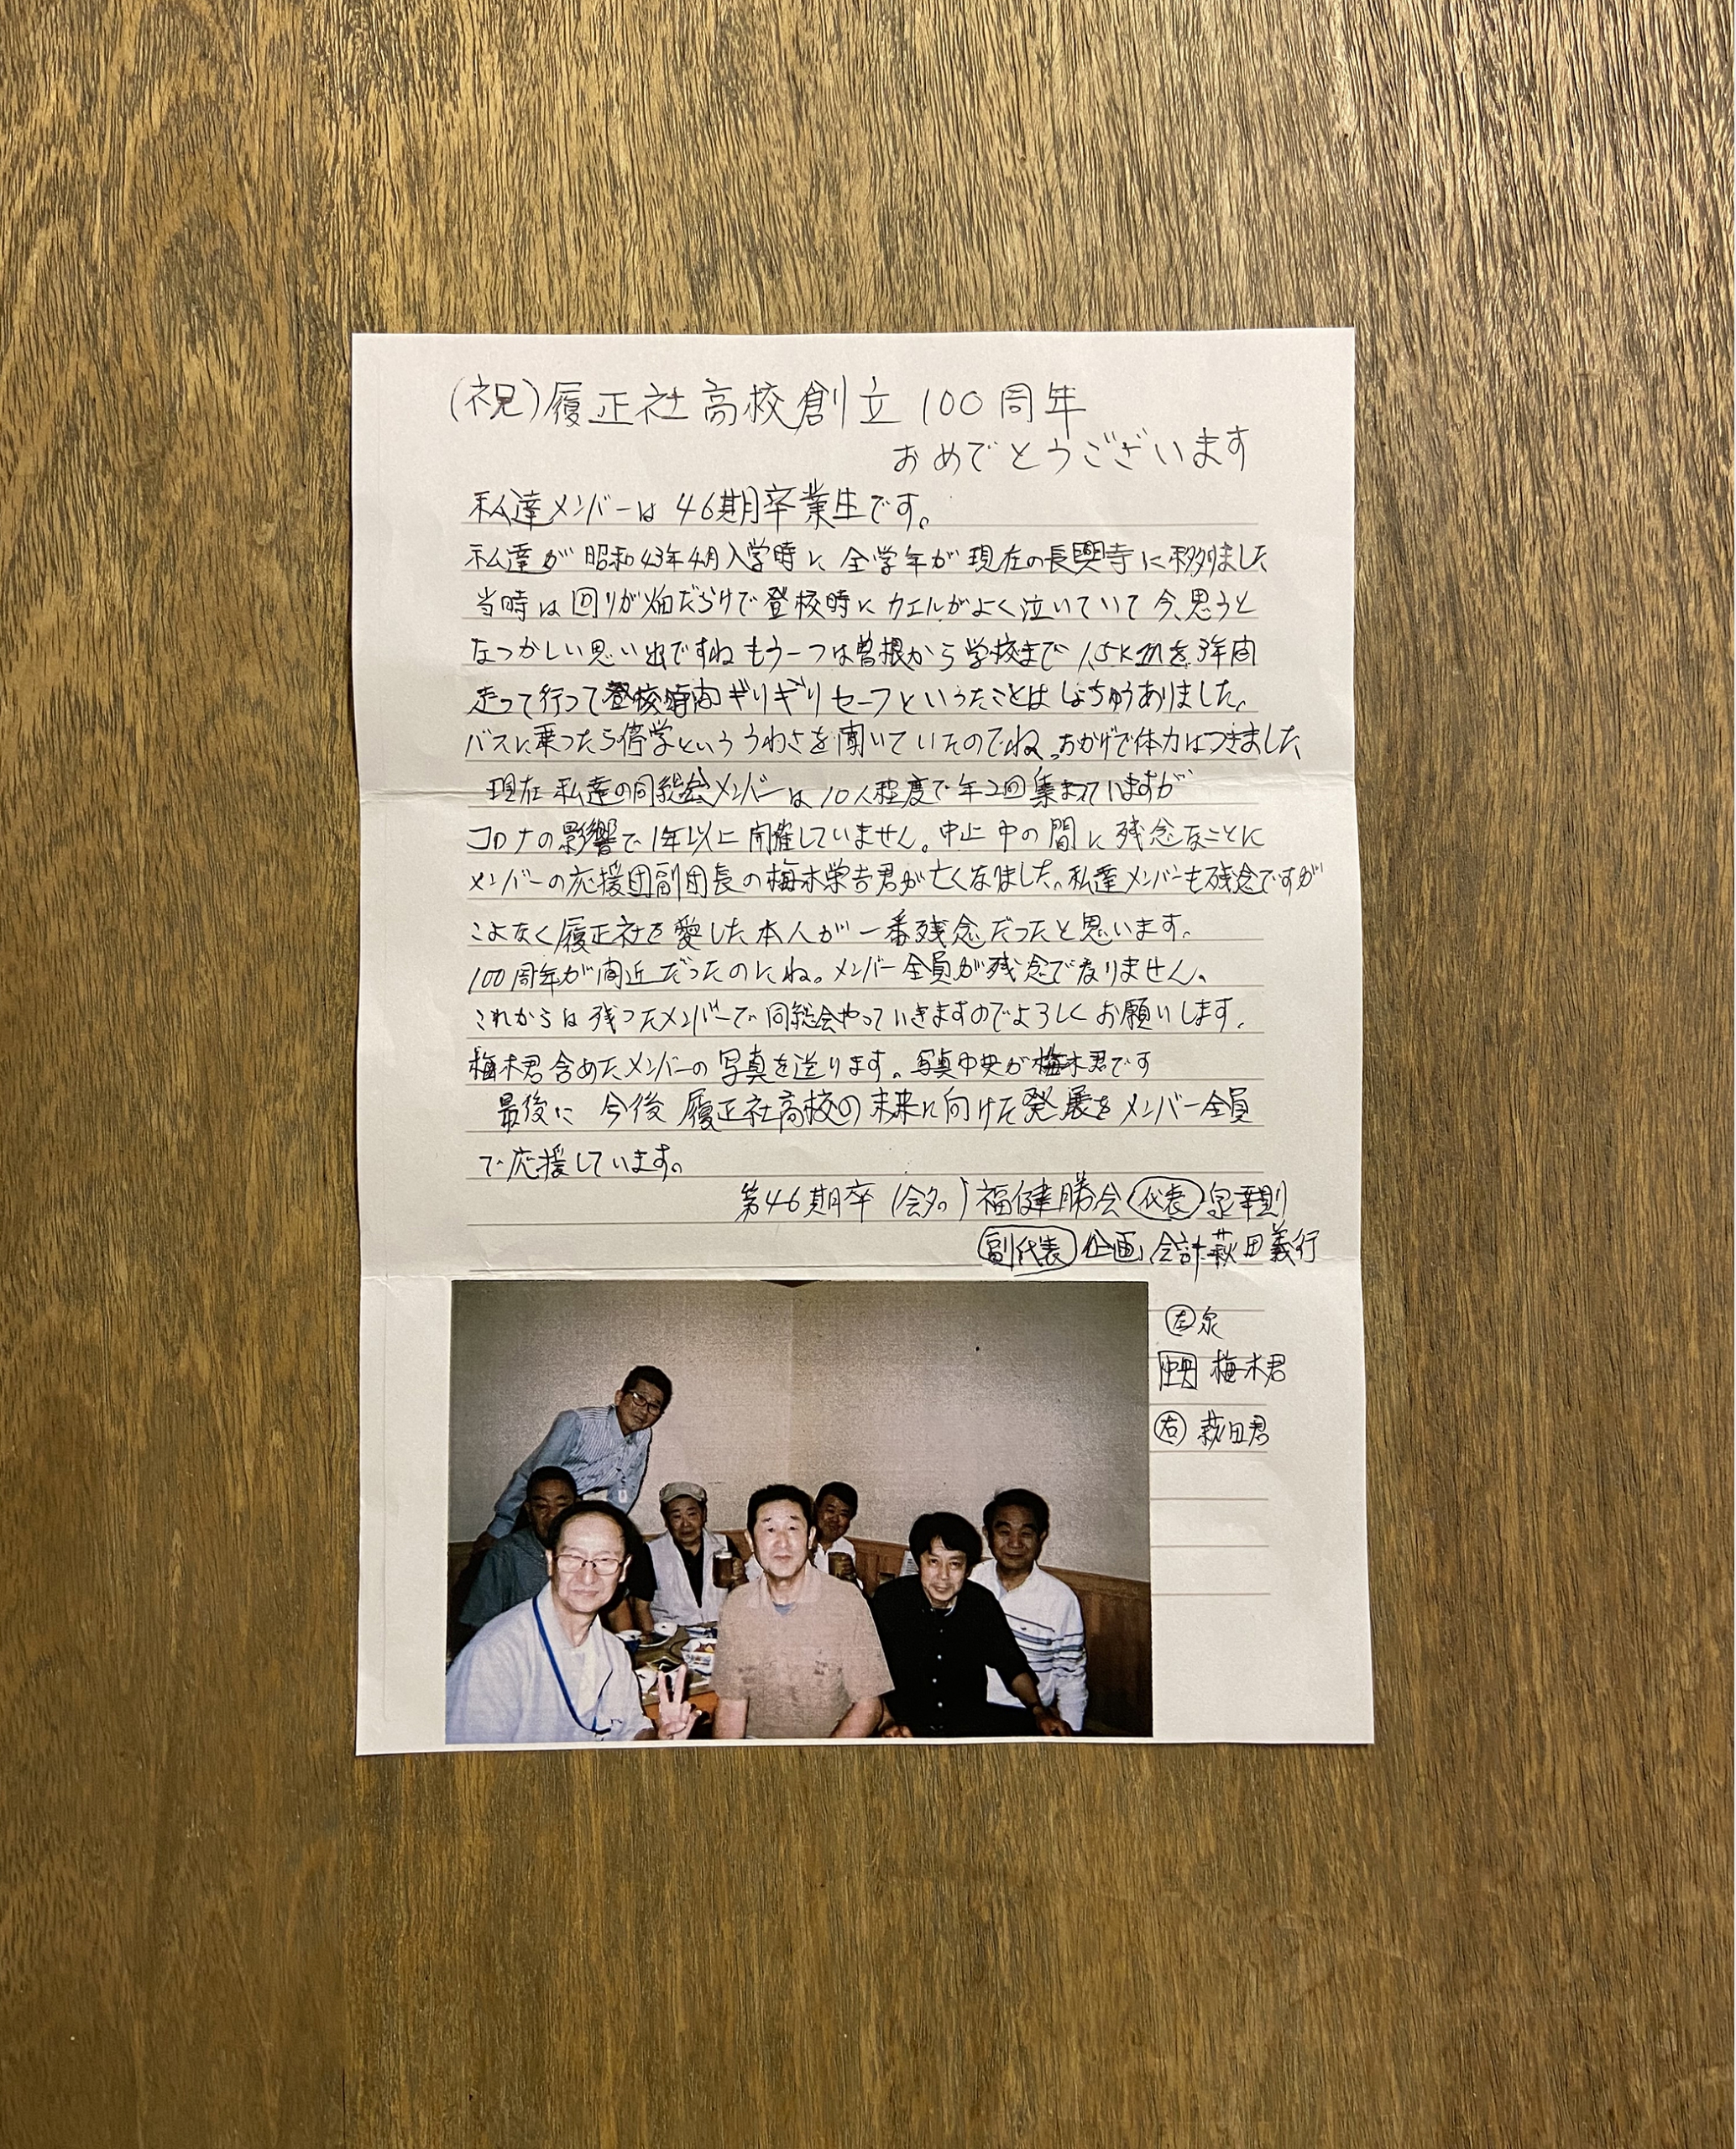 (祝)履正社高校創立100周年
おめでとうございます
私達メンバーは46期卒業生です。
私達が昭和43年4月入学時に全学年が現在の長興寺に移りました
当時は回りが畑だらけで登校時にカエルがよく泣いていて今、思うと
なつかしい思い出ですねもう一つは曽根から学校まで1.5kmを3年間
走って行って登校時間ギリギリセーフというたことはしょちゅうありました。
バスに乗ったら停学といううわさを聞いていたのでね。おかげで体力はつきました
現在私達の同総会メンバーは10人程度で年2回集まっていますが
コロナの影響で1年以上開催していません。中止中の間に残念なことに
メンバーの応援団副団長の梅木栄吉君が亡くなました。私達メンバーも残念ですが
こよなく履正社を愛した本人が一番残念だったと思います。
100周年が間近だったのにね。メンバー全員が残念でなりません。
これからは残ったメンバーで同総会やっていきますのでよろしくお願いします。
梅木君含めたメンバーの写真を送ります。写真中央が梅木君です
最後に今後履正社高校の未来に向けた発展をメンバー全員
で応援しています。
第46期卒(会名)福健勝会 代表 泉幸則
副代表 企画、会計 萩田義行
左 泉
中央 梅木君
右 萩田君